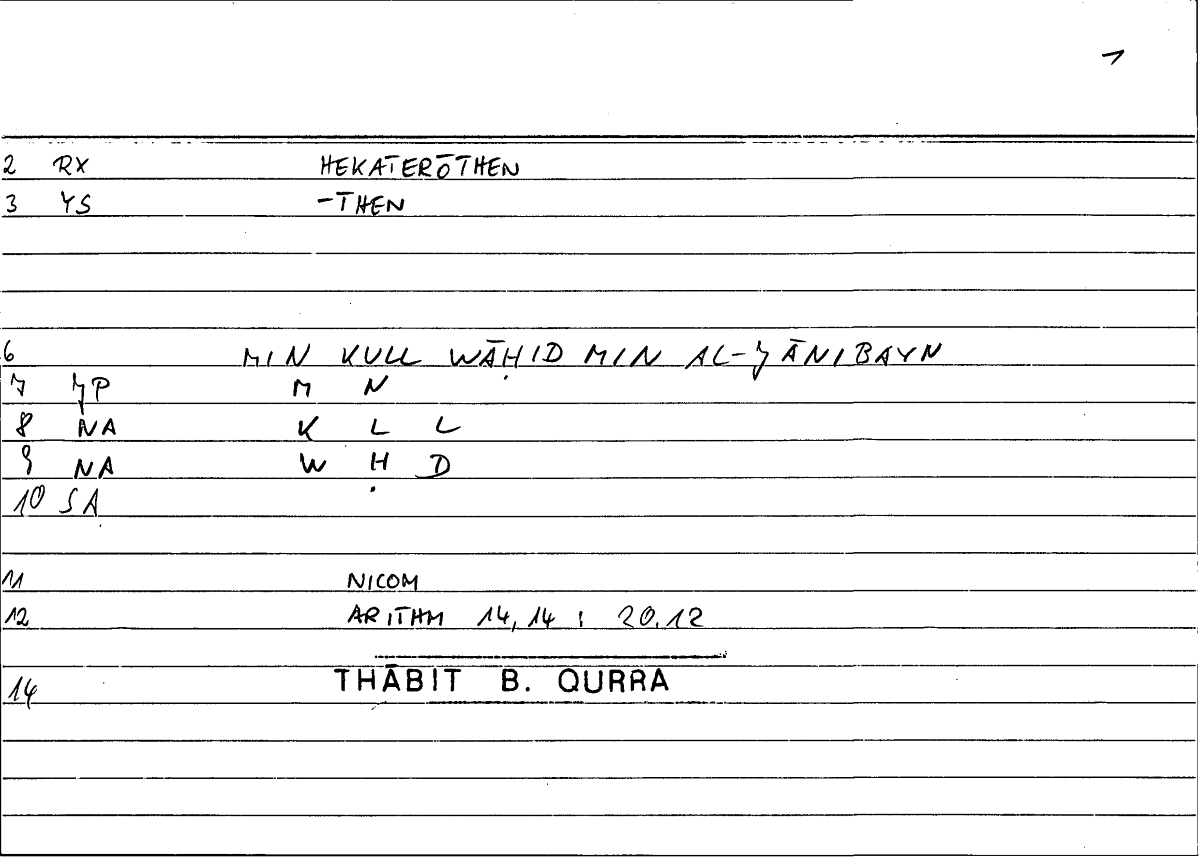 1
2 RX HEKATERŌTHEN
3 YS -THEN
6 MIN KULL WĀḤID MIN AL-JĀNIBAYN
7 JP M N
8 NA K L L
9 NA W Ḥ D
10 SA
11 NICOM
12 ARITHM 14,14 : 20.12
14 THĀBIT B. QURRA